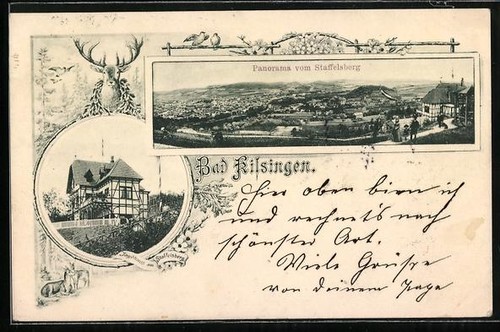 Panorama vom Staffelsberg
Bad Kissingen.
Staffelsberg
Hier oben bin ich
und rechnet's nach
schönster Art.
Viele Grüsse
von deinem Papa